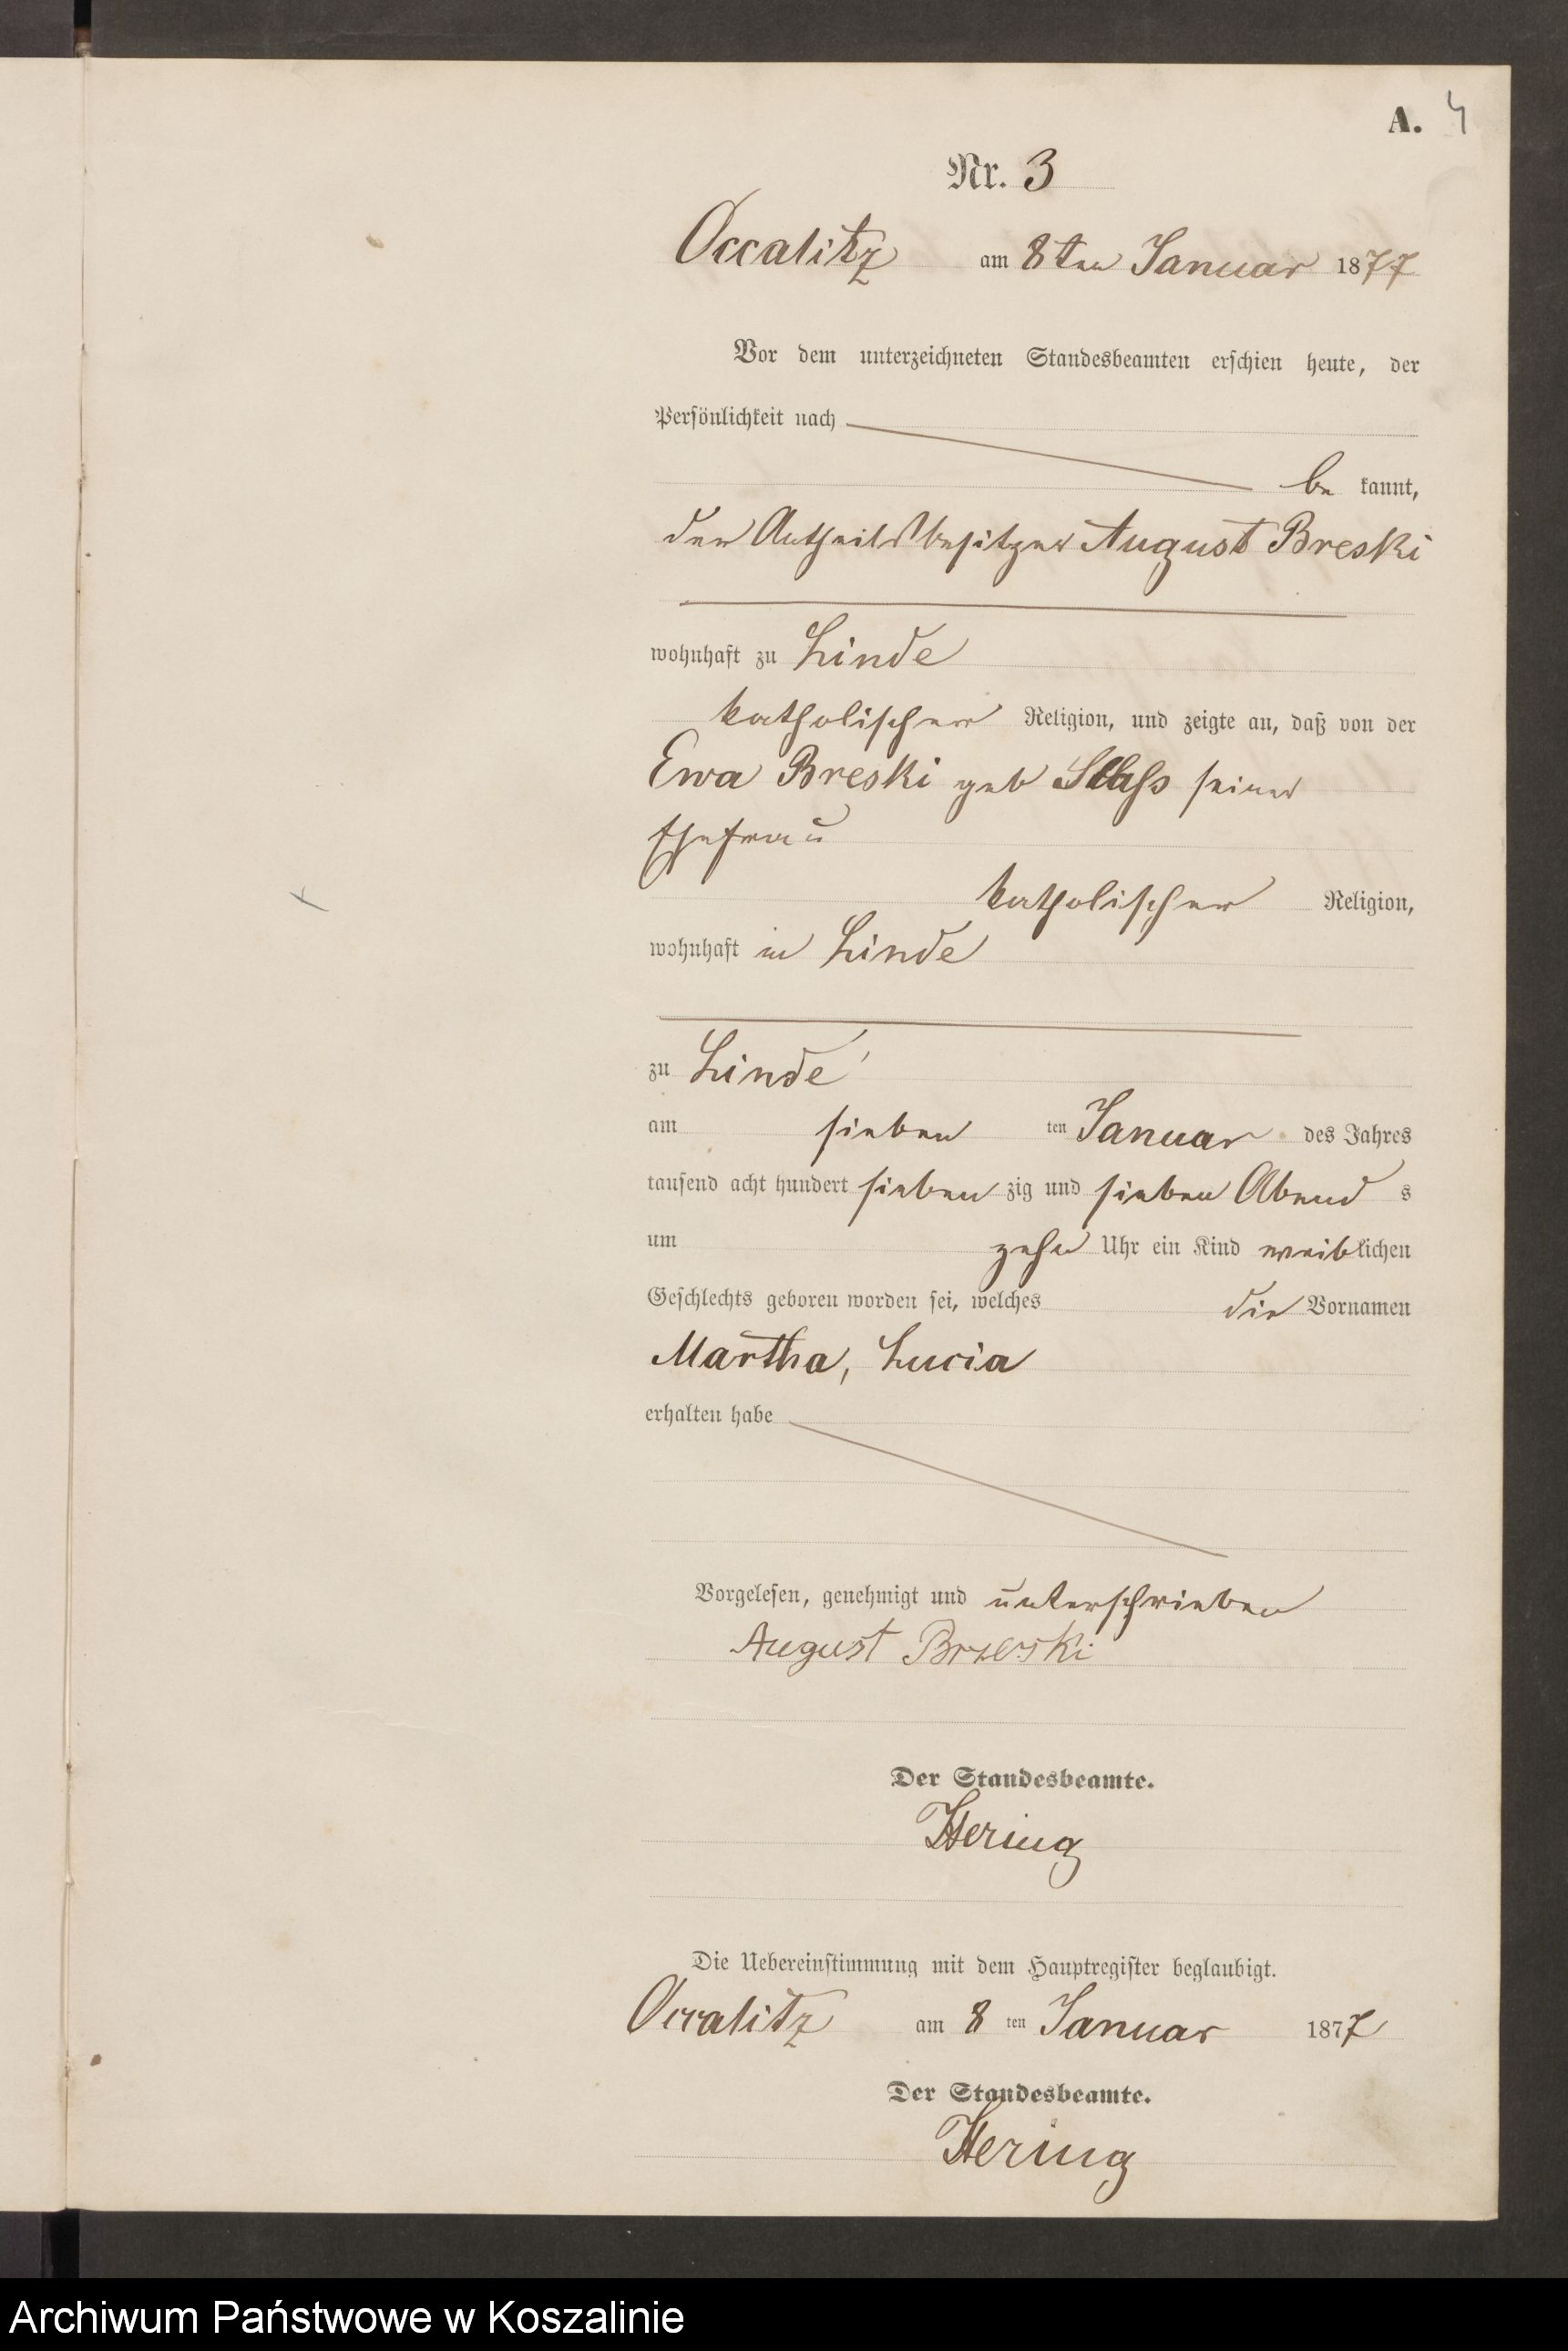 A. 4
Nr. 3
Occalitz am 8ten Januar 1877
Vor dem unterzeichneten Standesbeamten erschien heute, der
Persönlichkeit nach
be kannt,
der Antheilsbesitzer August Breski
wohnhaft zu Linde
katholischer Religion, und zeigte an, daß von der
Ewa Breski geb seiner
Ehefrau
katholischer Religion,
wohnhaft in Linde
zu Linde
am sieben ten Januar des Jahres
tausend acht hundert sieben zig und sieben Abend s
um zehn Uhr ein Kind weiblichen
Geschlechts geboren worden sei, welches die Vornamen
Martha, Lucia
erhalten habe
Vorgelesen, genehmigt und unterschrieben
August Brzeski
Der Standesbeamte.
Hering
Die Uebereinstimmung mit dem Hauptregister beglaubigt.
Occalitz am 8 ten Januar 1877
Der Standesbeamte.
Hering
Archiwum Państwowe w Koszalinie